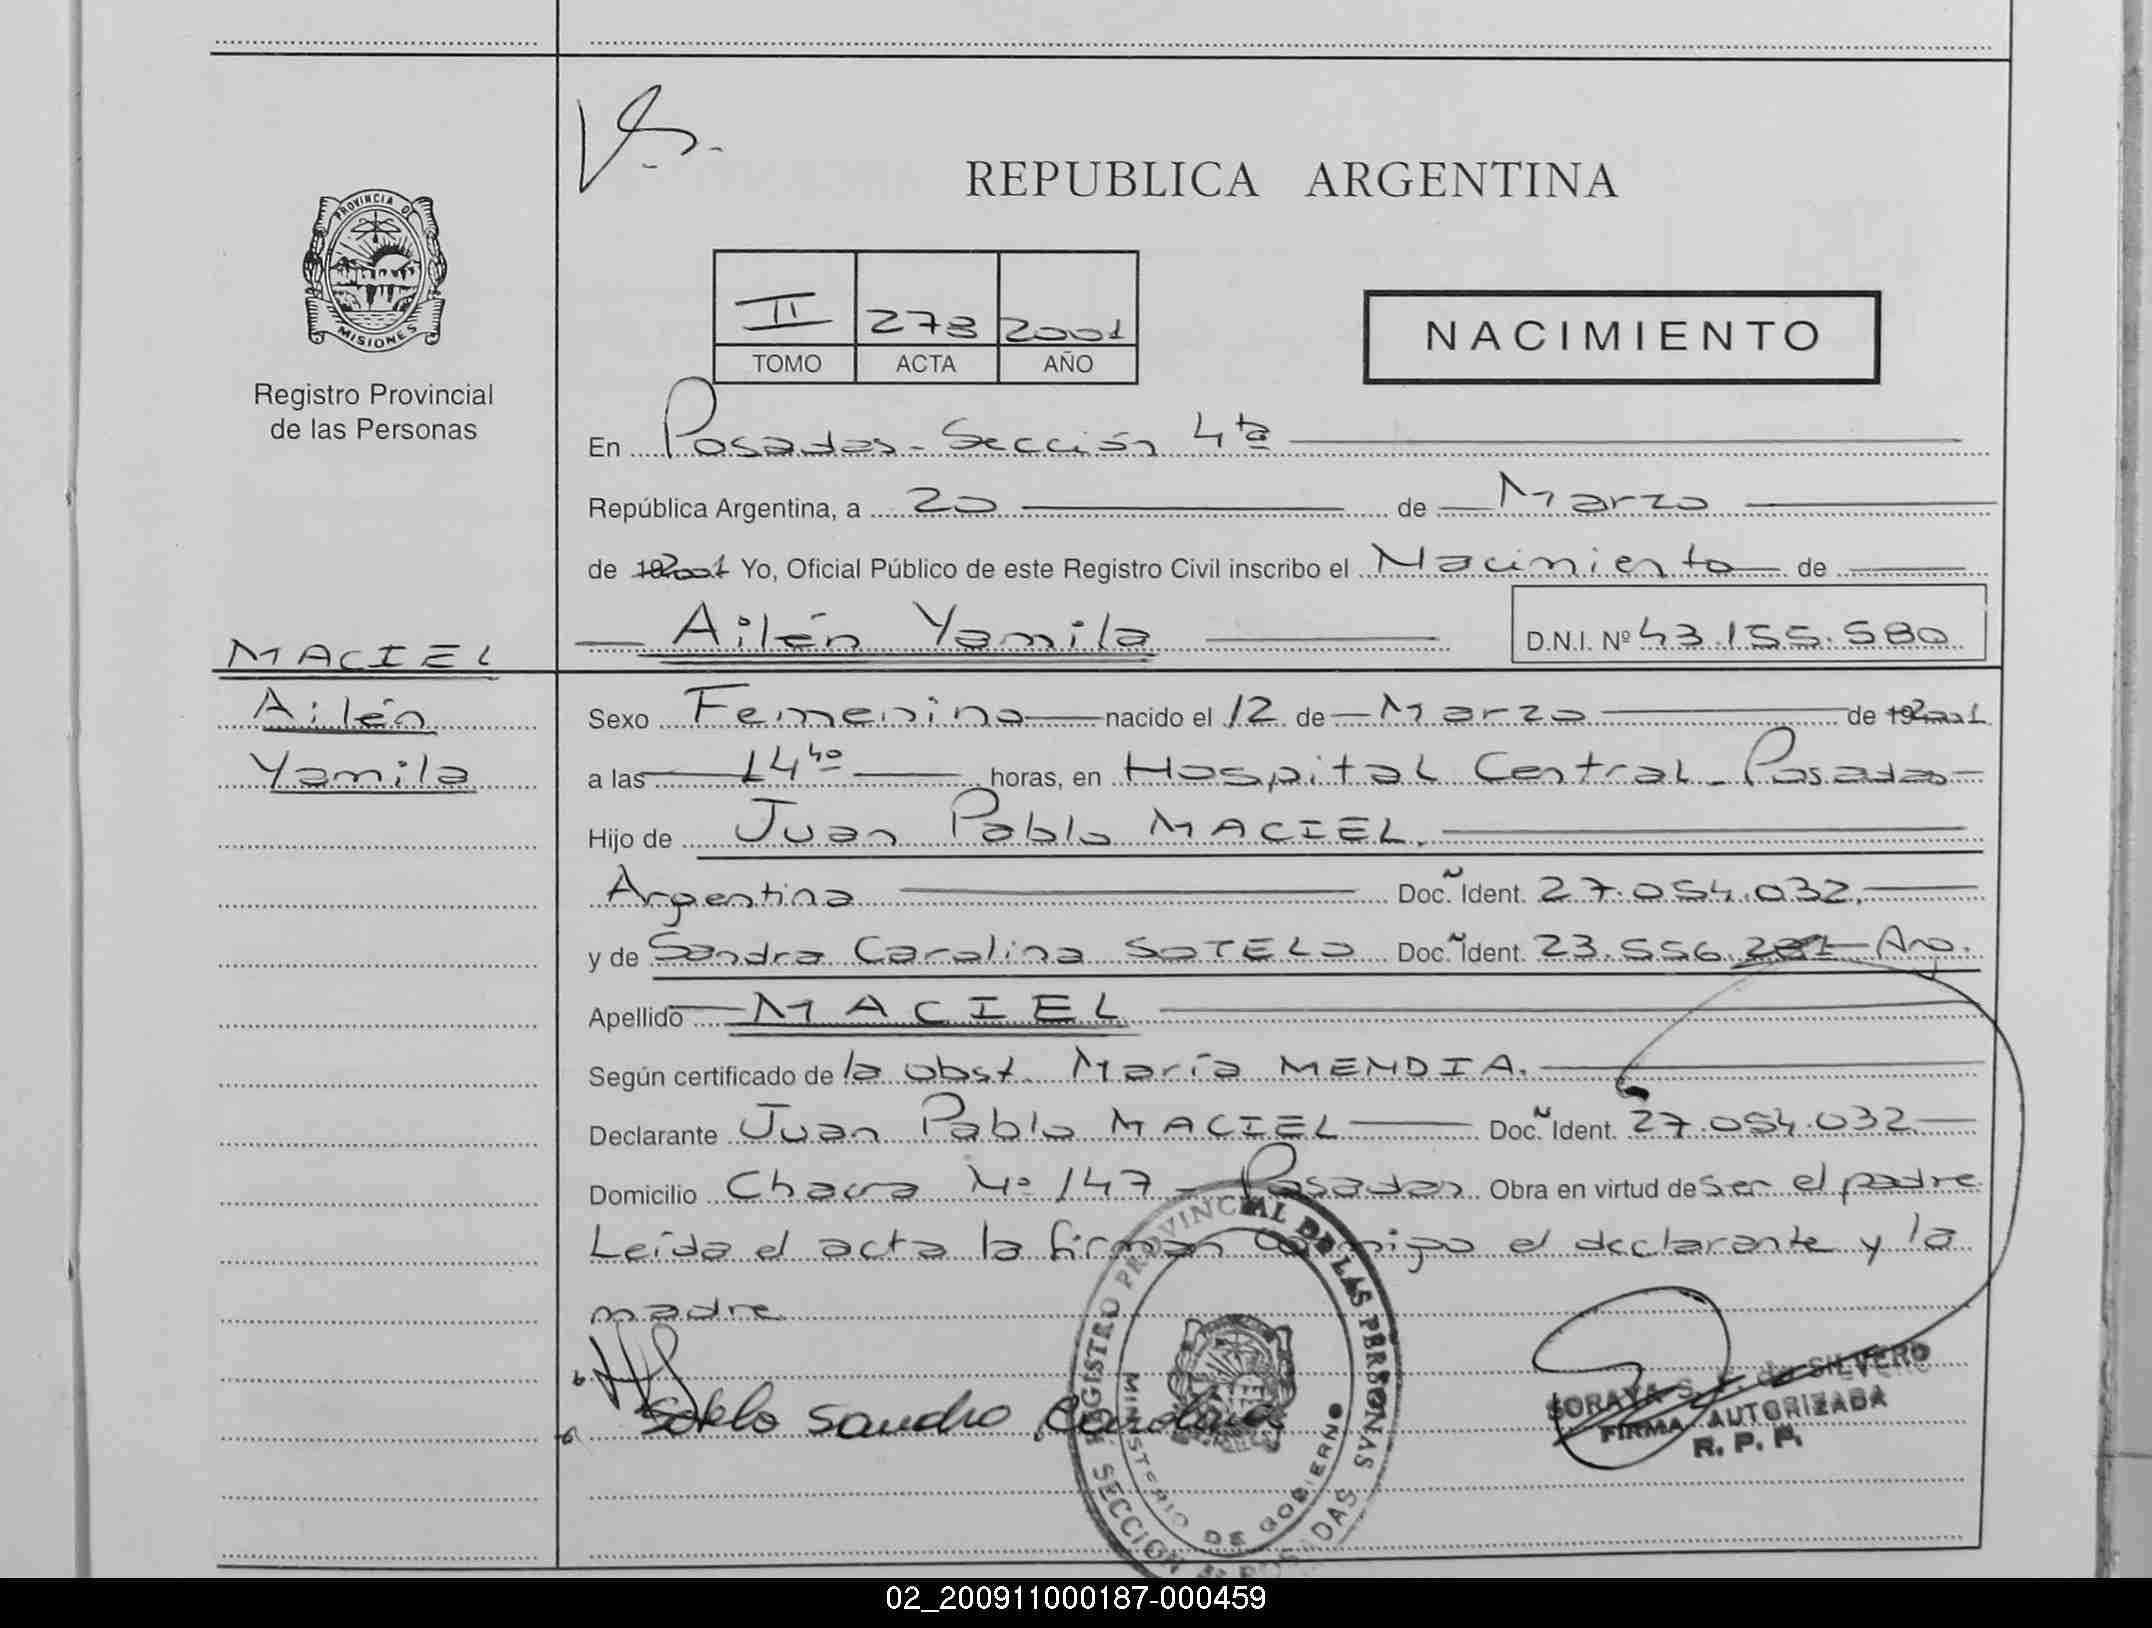 REPUBLICA ARGENTINA
PROVINCIA D
MISIONES
Registro Provincial
de las Personas
II 273 2001
TOMO ACTA AÑO
NACIMIENTO
En Posadas - Sección 4ta
República Argentina, a 20 de Marzo
de 2001 Yo, Oficial Público de este Registro Civil inscribo el Nacimiento de
Ailén Yamila D.N.I. Nº 43.155.580
MACIEL
Ailén
Yamila
Sexo Femenino nacido el 12 de Marzo de 2001
a las 14 40 horas, en Hospital Central - Posadas
Hijo de Juan Pablo MACIEL.
Argentina Doc. Ident. 27.054.032.
y de Sandra Carolina SOTELO Doc. Ident. 23.556.281 Arg.
Apellido MACIEL
Según certificado de la obst. María MENDIA.
Declarante Juan Pablo MACIEL Doc. Ident. 27.054.032
Domicilio Chacra Nº 147 - Posadas Obra en virtud de ser el padre
Leída el acta la firman conmigo el declarante y la
madre
Sotelo Sandra Carolina
REGISTRO PROVINCIAL DE LAS PERSONAS
MINISTERIO DE GOBIERNO
SECCION POSADAS
SORAYA S. de SILVERO
FIRMA AUTORIZADA
R. P. P.
02_200911000187-000459